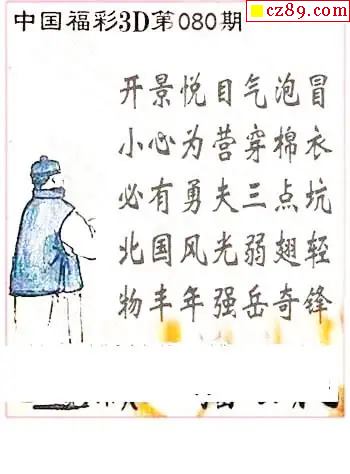 cz89.com
中国福彩3D第080期
开景悦目气泡冒
小心为营穿棉衣
必有勇夫三点坑
北国风光弱翅轻
物丰年强岳奇锋